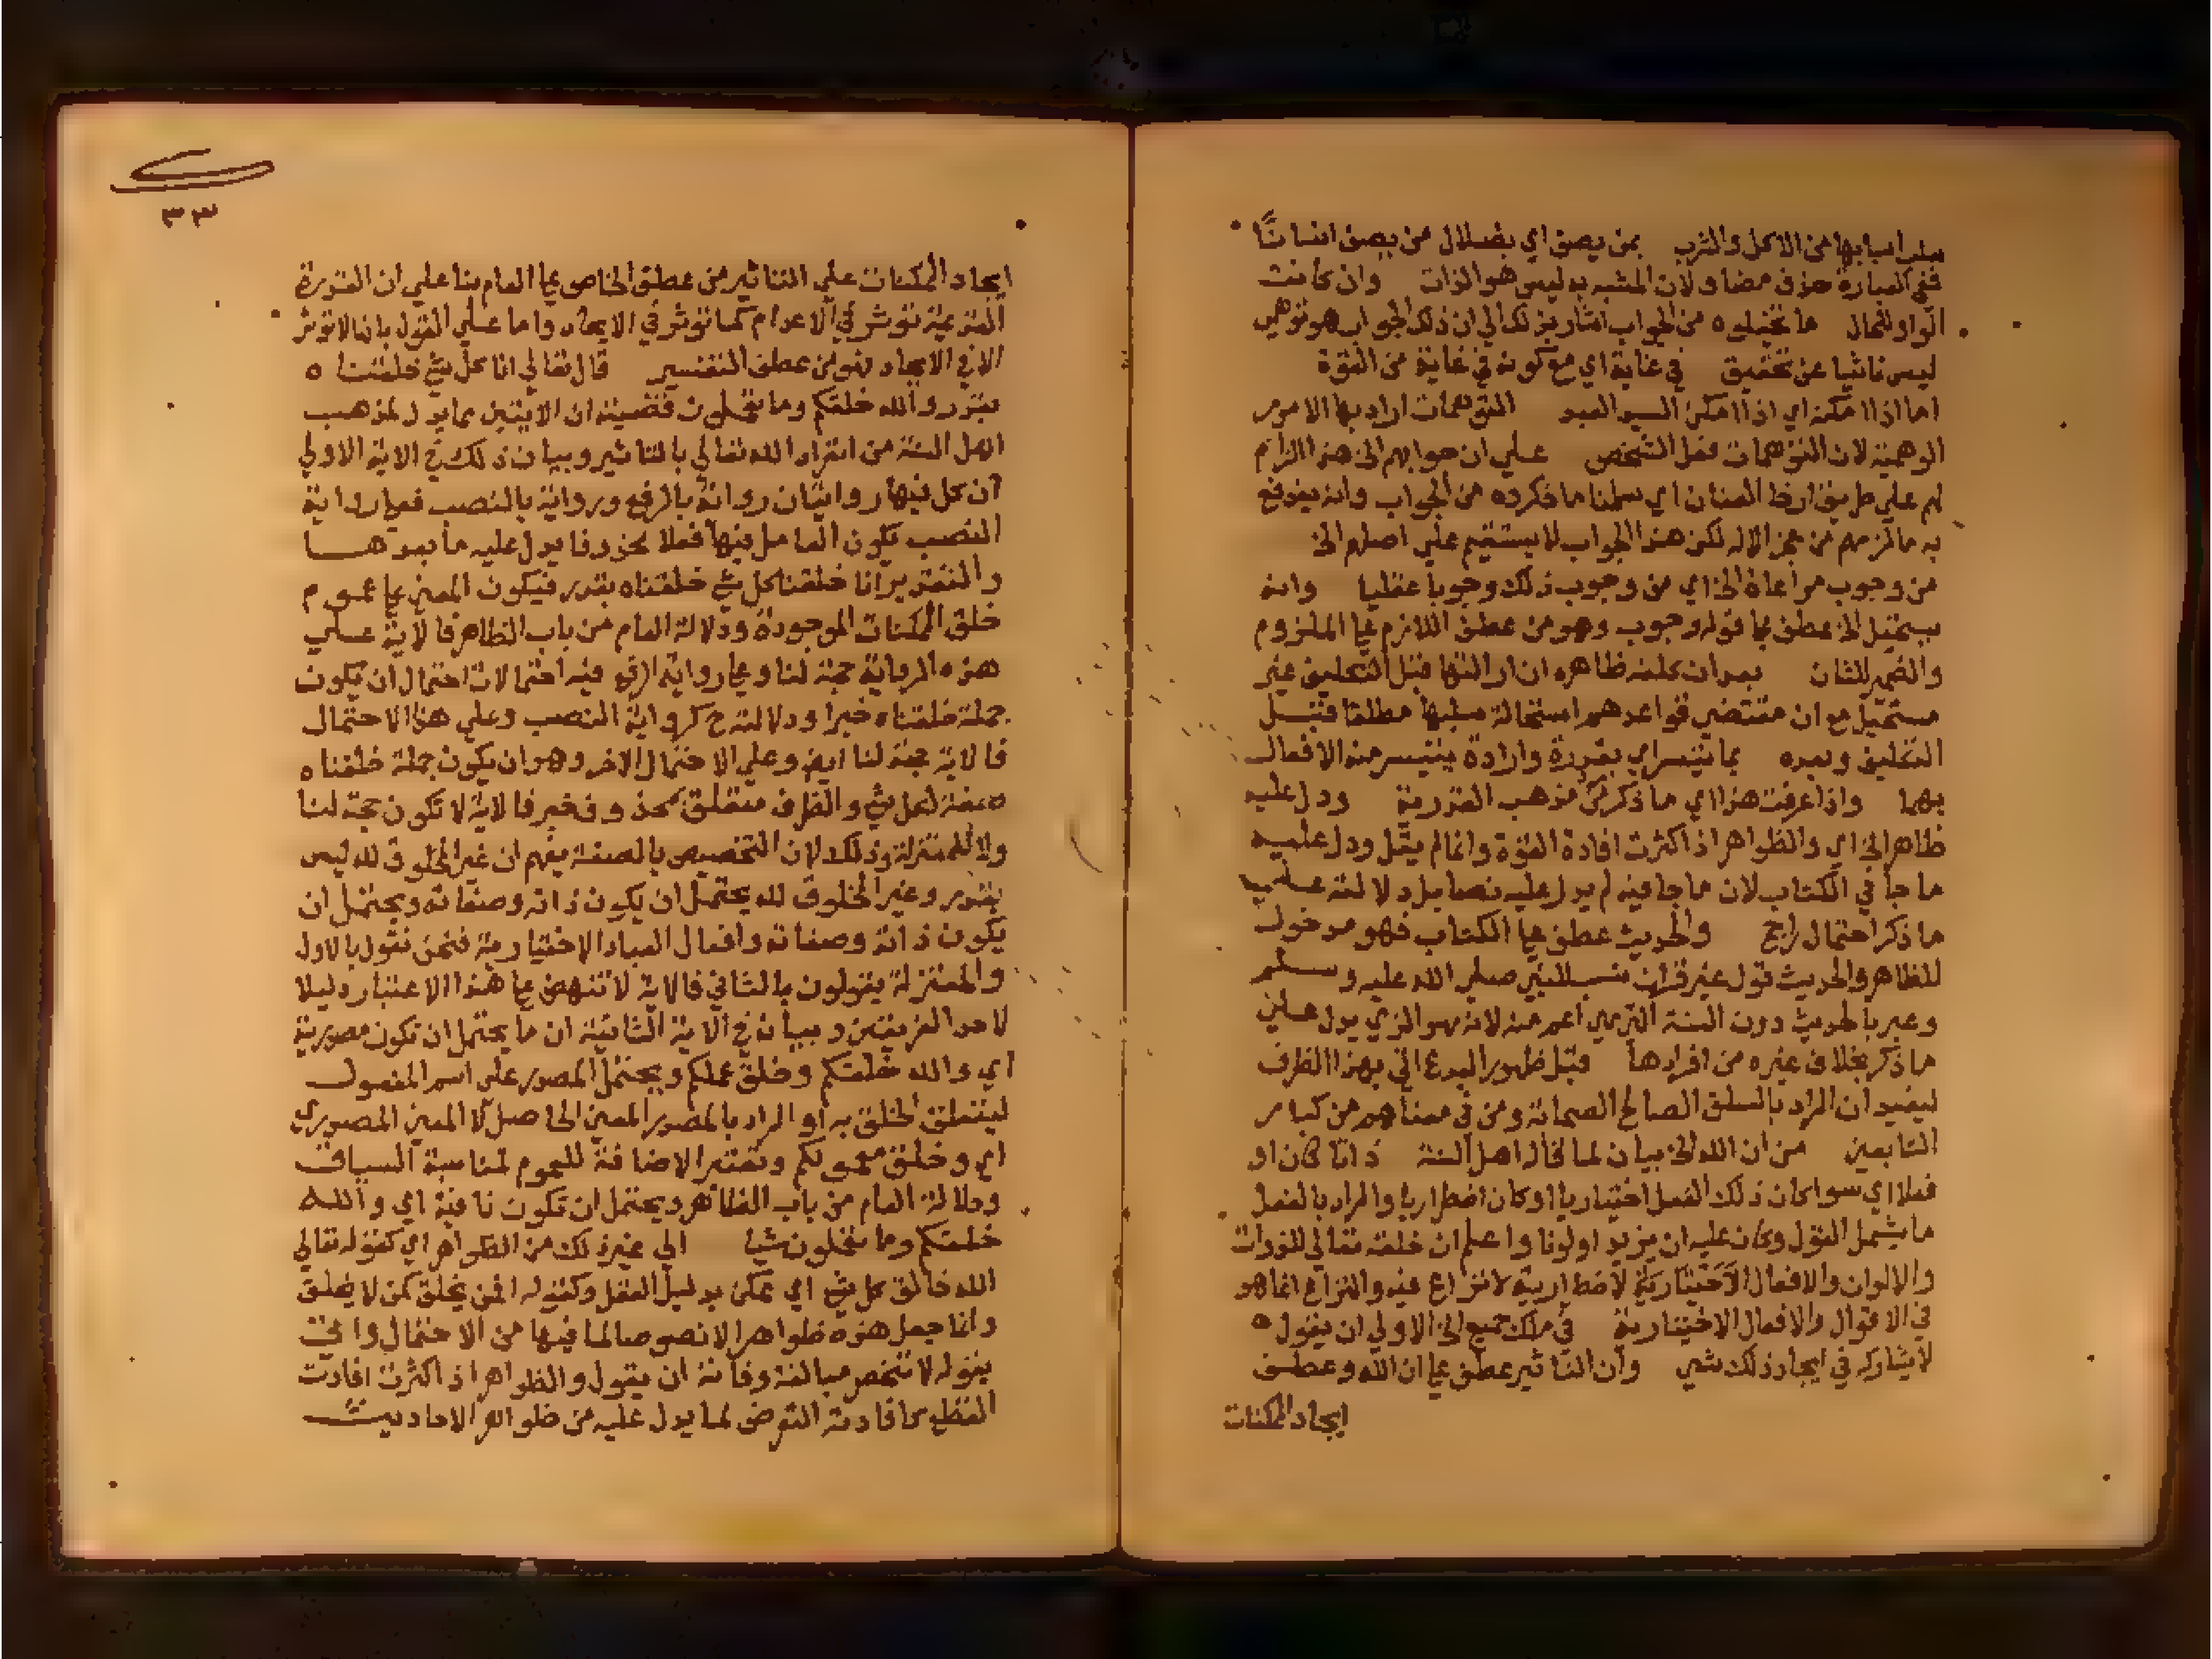 سلب اسبابها من الاكل والشرب بمن يصق اي بضلال من يبصق انسانًا
ففي العبارة حذف مضاف لان المشبه به ليس هو الذات وان كانت
الواو للحال ما تخيلوه من الجواب اشار بذلك الي ان ذلك الجواب هو توهم
ليس ناشيا عن تحقيق في غاية اي مع كونه في غاية من القوة
اما اذا امكنه اي اذا امكن السيد العبد التوهمات اراد بها الامور
الوهمية لان التوهمات فعل الشخص علي ان جوابهم الخ هذا الزام
لهم علي طريق ارخا العنان اي سلمنا ما ذكروه من الجواب وانه يندفع
به ما لزمهم من عجز الاله لكن هذا الجواب لا يستقيم علي اصلهم الخ
من وجوب مراعاة الخ اي من وجوب ذلك وجوبا عقليا وانه
يستحيل الخ عطف علي قوله وجوب وهو من عطف اللازم علي الملزوم
والضمير للشان بعد ان كلفه ظاهره ان ازالتها قبل التكليف غير
مستحيل مع ان مقتضي قواعدهم استحالة سلبها مطلقا قبل
التكليف وبعده بما يتيسر اي بقدرة وارادة يتيسر منه الافعال
بهما واذا عرفت هذا اي ما ذكر من مذهب القدرية ودل عليه
ظاهر الخ اي والظواهر اذا كثرت افادة القوة وانما لم يقل ودل عليه
ما جا في الكتاب لان ما جا فيه لم يدل عليه نصا بل دلالته علي
ما ذكر احتمال راجح والحديث عطف علي الكتاب فهو مدخول
للظاهر والحديث قول غير قران نسب للنبي صلي الله عليه وسلم
وعبر بالحديث دون السنة التي هي اعم منه لانه هو الذي يدل علي
ما ذكر بخلاف غيره من افرادها قبل ظهور البدع اتي بهذا الظرف
ليفيد ان المراد بالسلف الصالح الصحابة ومن في معناهم من كبار
التابعين من ان الله الخ بيان لما قال اهل السنة ذاتا كان او
فعلا اي سوا كان ذلك الفعل اختياريا او كان اضطراريا والمراد بالفعل
ما يشمل القول وكان عليه ان يزيد او لونا واعلم ان خلقه تعالي للذوات
والالوان والافعال الاختيارية لاضطاربية لا نزاع فيه والنزاع انما هو
في الاقوال والافعال الاختيارية في ملك جميع الخ الاولي ان يقول
لا يشاركه في ايجاد ذلك شي وان التاثير عطف علي ان الله وعطف
ايجاد الممكنات
٣٣
ايجاد الممكنات علي التاثير من عطف الخاص علي العام بنا علي ان القدرة
القديمة توثر في الاعدام كما توثر في الايجاد واما علي القول بانها لا توثر
الا في الايجاد فهو من عطف التفسير قال تعالي انا كل شي خلقناه
بقدر والله خلقكم وما تعملون قضيته ان الايتين مما يدل لمذهب
اهل السنة من انفراد الله تعالي بالتاثير وبيان ذلك في الاية الاولي
ان كل فيها روايتان رواية بالرفع ورواية بالنصب فعلي رواية
النصب يكون العامل فيها فعلا محذوفا يدل عليه ما بعدها
والتقدير انا خلقنا كل شي خلقناه بقدر فيكون المعني علي عموم
خلق الممكنات الموجودة ودلالة العام من باب الظاهر فالاية علي
هذه الرواية حجة لنا وعلي رواية الرفع فيه احتمالات احتمال ان يكون
جملة خلقناه خبرا ودلالته ح كرواية النصب وعلي هذا الاحتمال
فالاية حجة لنا ايض وعلي الاحتمال الاخر وهو ان يكون جملة خلقناه
صفة لكل شي والظرف متعلق بمحذوف خبر فالاية لا تكون حجة لنا
ولا للمعتزلة وذلك لان التخصيص بالصفة يفهم ان غير المخلوق لله ليس
بقدر وغير المخلوق لله يحتمل ان يكون ذاته وصفاته ويحتمل ان
يكون ذاته وصفاته وافعال العباد الاختيارية فنحن نقول بالاول
والمعتزلة يقولون بالثاني فالاية لا تنهض علي هذا الاعتبار دليلا
لاحد الفريقين وبيانه في الاية الثانية ان ما يحتمل ان تكون مصدرية
اي والله خلقكم وخلق عملكم ويحتمل المصدر علي اسم المفعول
ليتعلق الخلق به او المراد بالمصدر المعني الحاصل لا المعني المصدري
اي وخلق معمولكم وتعتبر الاضافة للعموم لمناسبة السياق
ودلالة العام من باب الظاهر ويحتمل ان تكون نافية اي والله
خلقكم وما تعملون شيا الي غير ذلك من الظواهر اي كقوله تعالي
الله خالق كل شي اي ممكن بدليل العقل وكقوله افمن يخلق كمن لا يخلق
وانما جعل هذه ظواهر لا نصوصا لما فيها من الاحتمال واتي
بقوله لا تنحصر مبالغة وفاته ان يقول والظواهر اذا كثرت افادت
القطع كما فاته التعرض لما يدل عليه من ظواهر الاحاديث